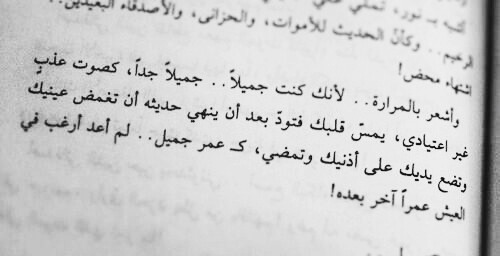 أشبه بـ نور، تملي علي
الرخيم.. وكأنّ الحديث للأموات، والحزانى، والأصدقاء البعيدين..
اشتهاء محض!
وأشعر بالمرارة.. لأنك كنت جميلاً.. جميلاً جداً، كصوت عذبٍ
غير اعتيادي، يمسّ قلبك فتودّ بعد أن ينهي حديثه أن تغمض عينيك
وتضع يديك على أذنيك وتمضي، كـ عمر جميل.. لم أعد أرغب في
العيش عمراً آخر بعده!